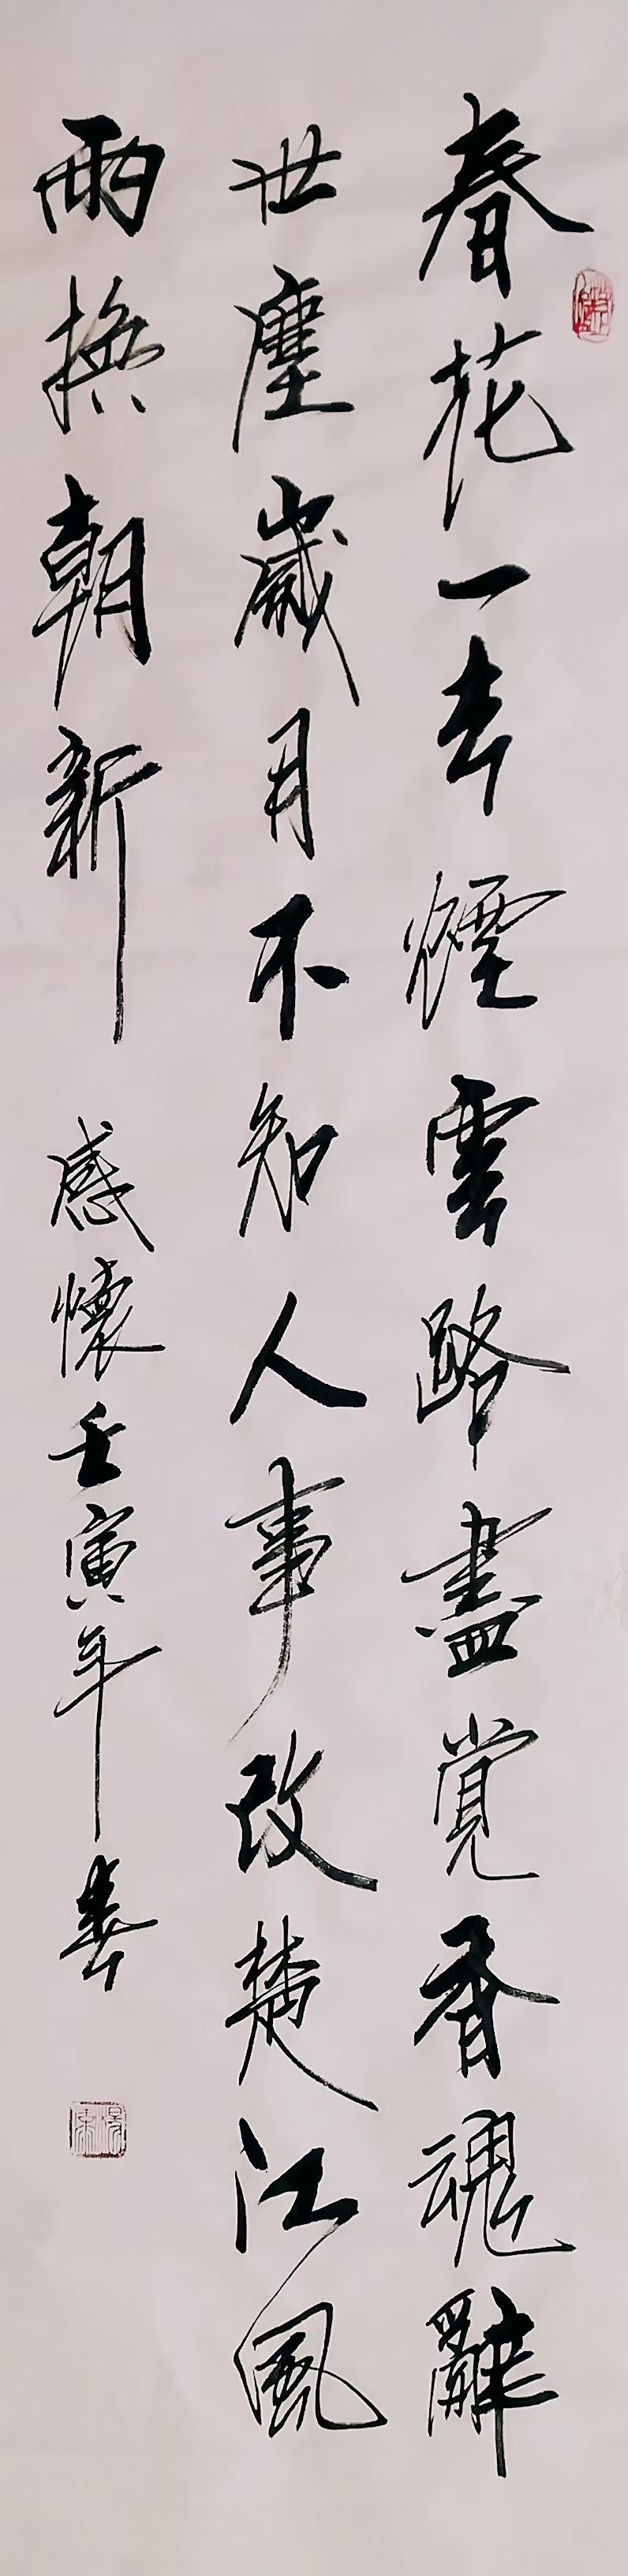 春花一去煙雲路盡覺香魂辭
世塵歲月不知人事改楚江風
雨換朝新 感懷壬寅年春